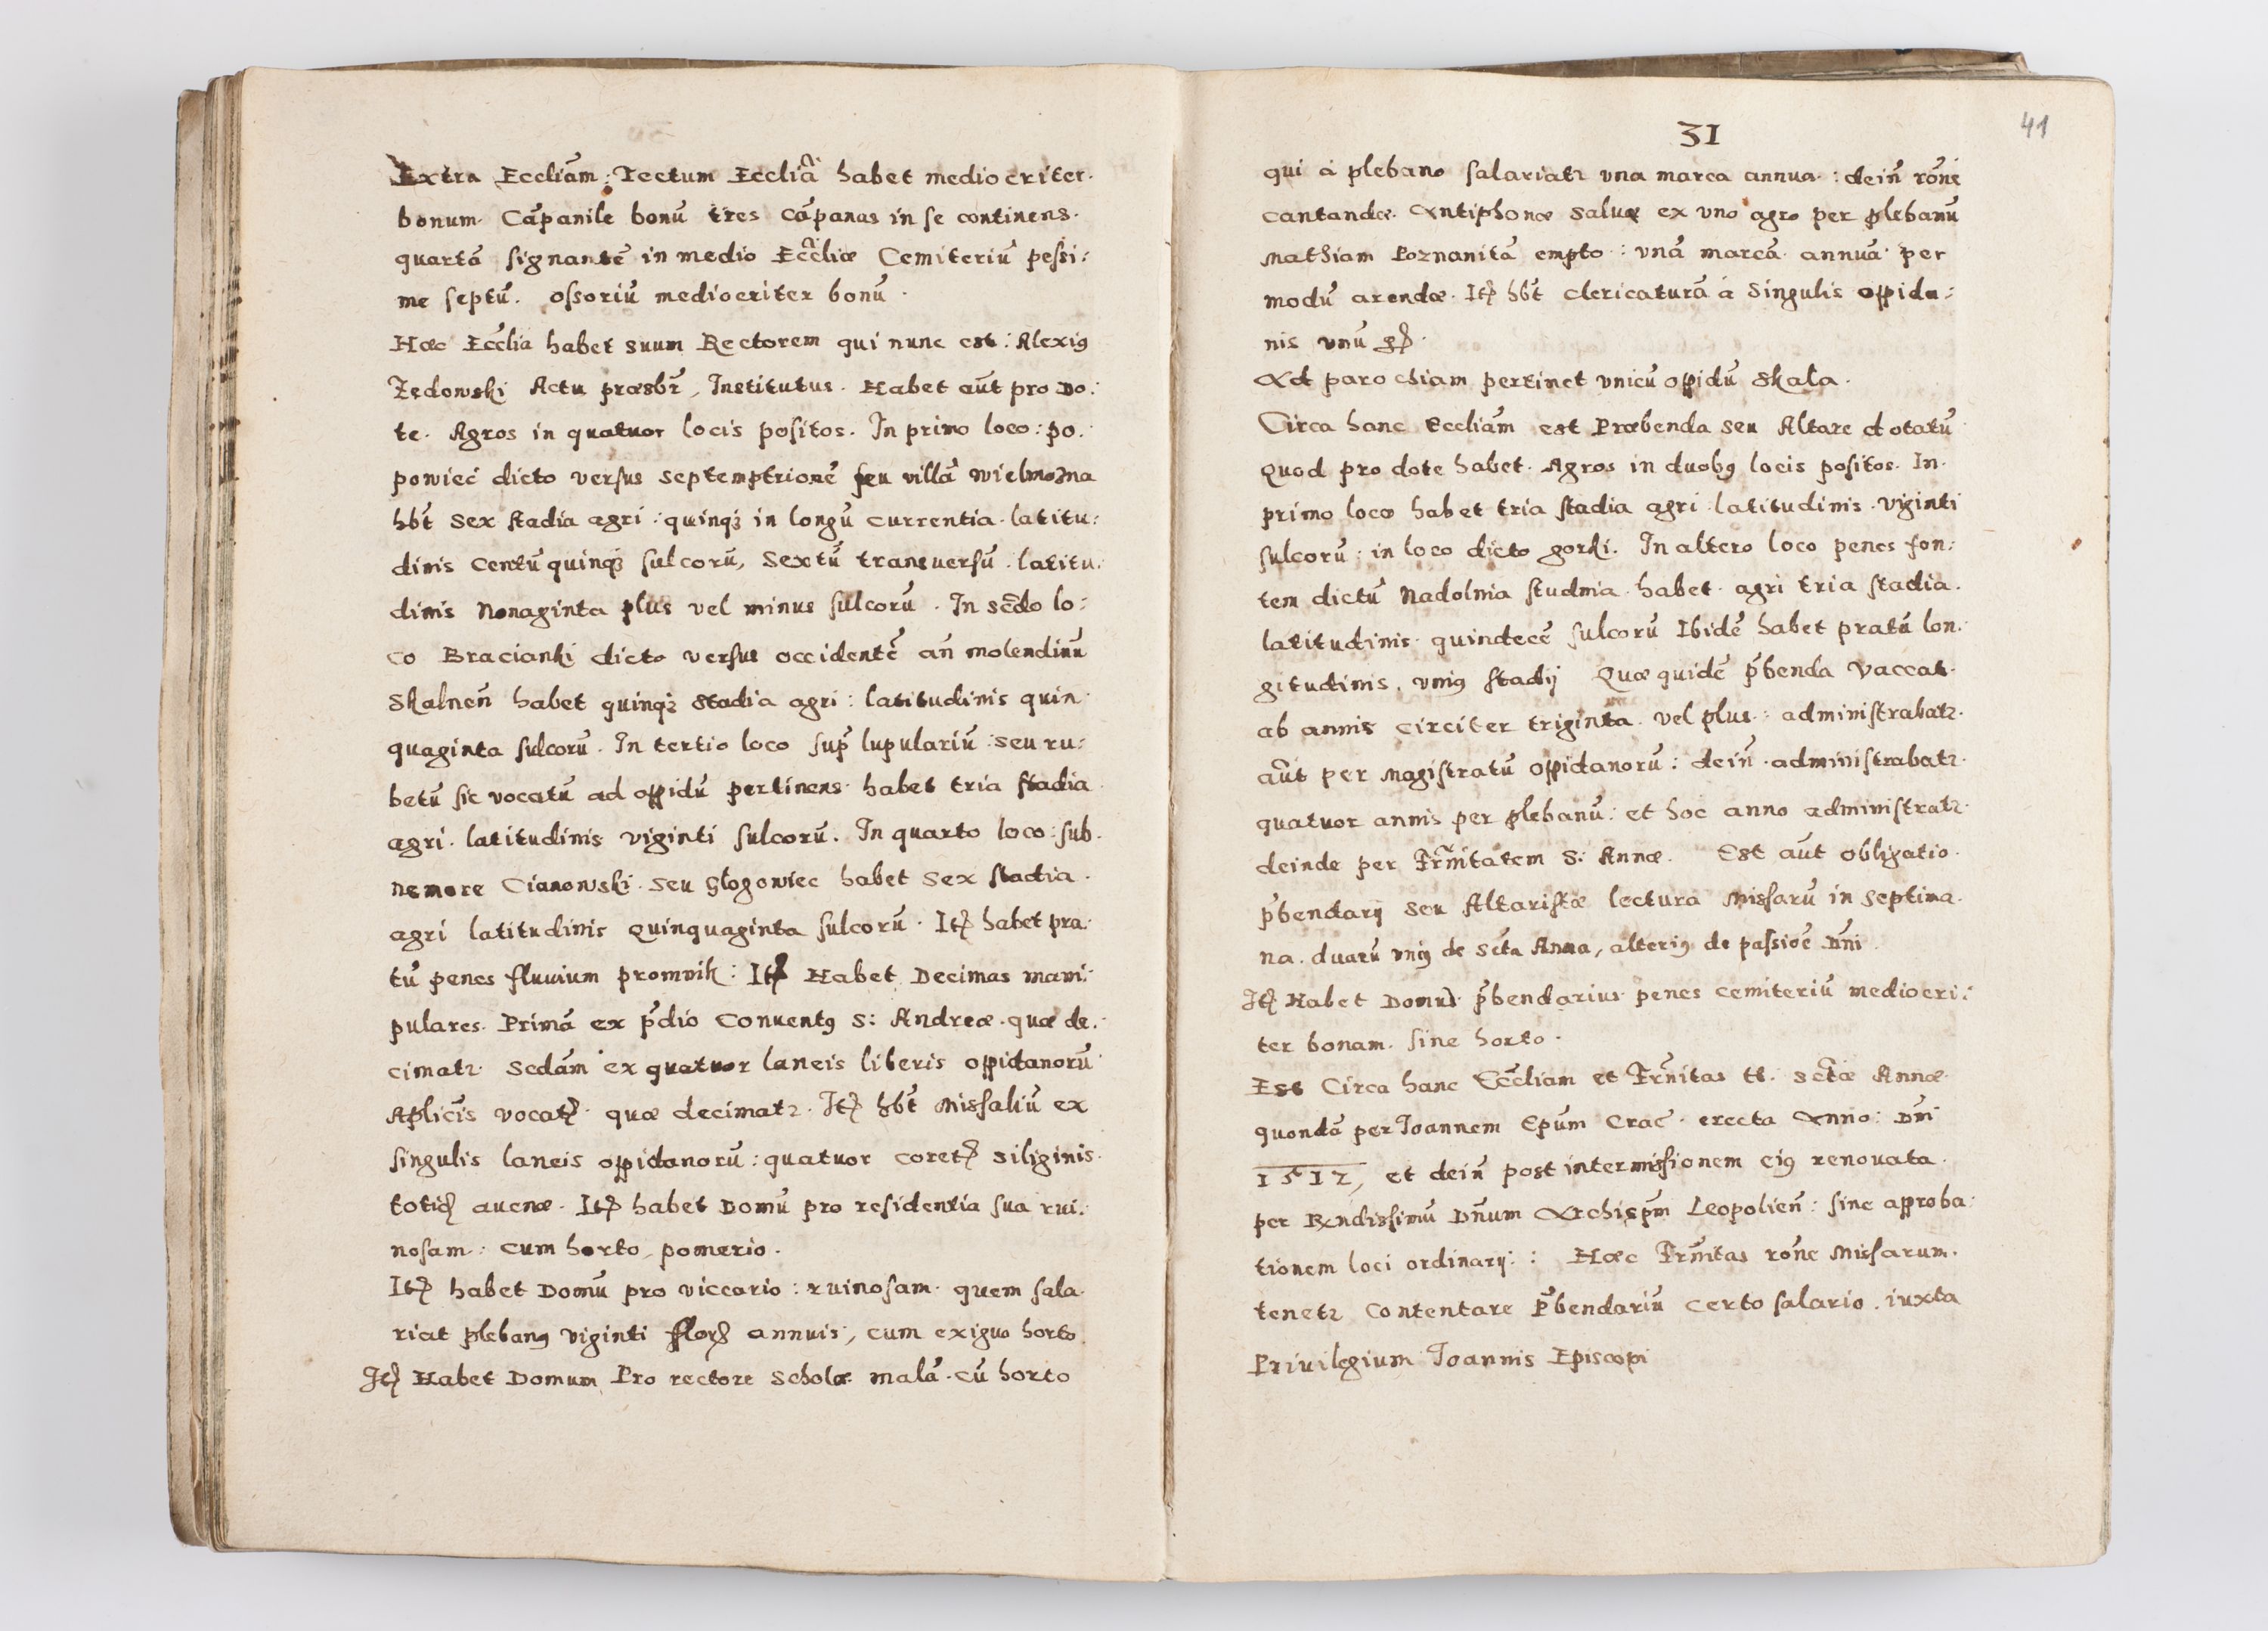 Extra Eccliãm: Tectum Ecclia habet mediocriter.
bonum. Cãpanile bonũ tres cãpanas in se continens.
quartã signantẽ in medio Eccliæ Cemiteriũ pessi:
me septũ. ossoriũ mediocriter bonũ.
Hæc Ecclia habet suum Rectorem qui nunc est: Alexig
Zędowski Actu præsbr̃, Institutus. Habet aũt pro Do:
te. Agros in quatuor locis positos. In primo loco: po.
powiec dicto versus septemptrionẽ seu villã Wielmozna
hbt̃ sex stadia agri: quinqȝ in longũ currentia. latitu:
dinis Centũ quinqȝ sulcorũ, sextũ transuersũ. latitu:
dinis Nonaginta plus vel minus sulcorũ. In scdo lo:
co Bracianki dicto versus occidentẽ añ molendinũ
Skalneñ habet quinqȝ stadia agri: latitudinis quin
quaginta sulcorũ. In tertio loco sup̃ lupulariũ: seu ru:
betũ sic vocatũ ad oppidũ pertinens. habet tria stadia.
agri. latitudinis viginti sulcorũ. In quarto loco: sub.
nemore Cianowski. seu Głogowiec habet sex stadia.
agri latitudinis Quinquaginta sulcorũ. Itꝫ habet pra.
tũ penes fluuium promnik: Itꝫ Habet Decimas mani:
pulares. Primã ex p̃dio Conuentg S: Andreæ. quæ de.
cimatr. Scdãm ex quatuor laneis liberis oppidanorũ
Aplicis vocatꝫ. quæ decimatr. Itꝫ hbt̃ Missaliũ ex
singulis laneis oppidanorũ: quatuor coretꝫ siliginis.
totidꝫ auenæ. Itꝫ habet Domũ pro residentia sua rui.
nosam: cum horto, pomerio.
Itꝫ habet Domũ pro viccario: ruinosam. quem sala.
riat plebang viginti florꝫ annuis, cum exiguo horto.
Itꝫ Habet Domum Pro rectore scholæ malã. cũ horto
31
41
qui à plebano salariatr vna marca annua.: deiñ roñe
cantandæ. Antiphonæ Salue ex vno agro per plebanũ
Mathiam Poznanitã empto: vnã marcã annuã per
modũ arendæ. Itꝫ hbt̃ clericaturã à singulis oppida:
nis vnũ gꝫ.
Ad parochiam pertinet vnicũ oppidũ Skala.
Circa hanc Eccliãm est Præbenda seu Altare dotatũ
Quod pro dote habet. Agros in duobg locis positos. In.
primo loco habet tria stadia agri. latitudinis. viginti
sulcorũ: in loco dicto gorki. In altero loco penes fon:
tem dictũ Nadolnia studnia habet. agri tria stadia.
latitudinis. quindecẽ sulcorũ Ibidẽ habet pratũ lon.
gitudinis. vnig stadij Quæ quidẽ p̃benda Vaccat.
ab annis circiter triginta. vel plus: administrabatr.
aũt per Magistratũ Oppidanorũ: deiñ. administrabatr.
quatuor annis per plebanũ: et hoc anno administratr.
deinde per Frñitatem S: Annæ. Est aũt obligatio.
p̃bendarij seu Altaristæ lectura Missarũ in septima.
na. duarũ vnig de Scta Anna, alterig de passioẽ Dñi
Itꝫ Habet Domũ p̃bendarius penes cemiteriũ mediocri:
ter bonam. sine horto.
Est Circa hanc Eccliam et Frñitas tt. Sctæ Annæ
quondã per Joannem Epũm Crac̃. erecta Anno: Dñi
1512, et deiñ post intermissionem eig renouata.
per Rxndissimũ Dñum Archiepm̃ Leopolieñ: sine approba:
tionem loci ordinarij: Hæc Frñitas roñe Missarum.
tenetr Contentare P̃bendariũ certo salario. iuxta
Priuilegium Joannis Episcopi